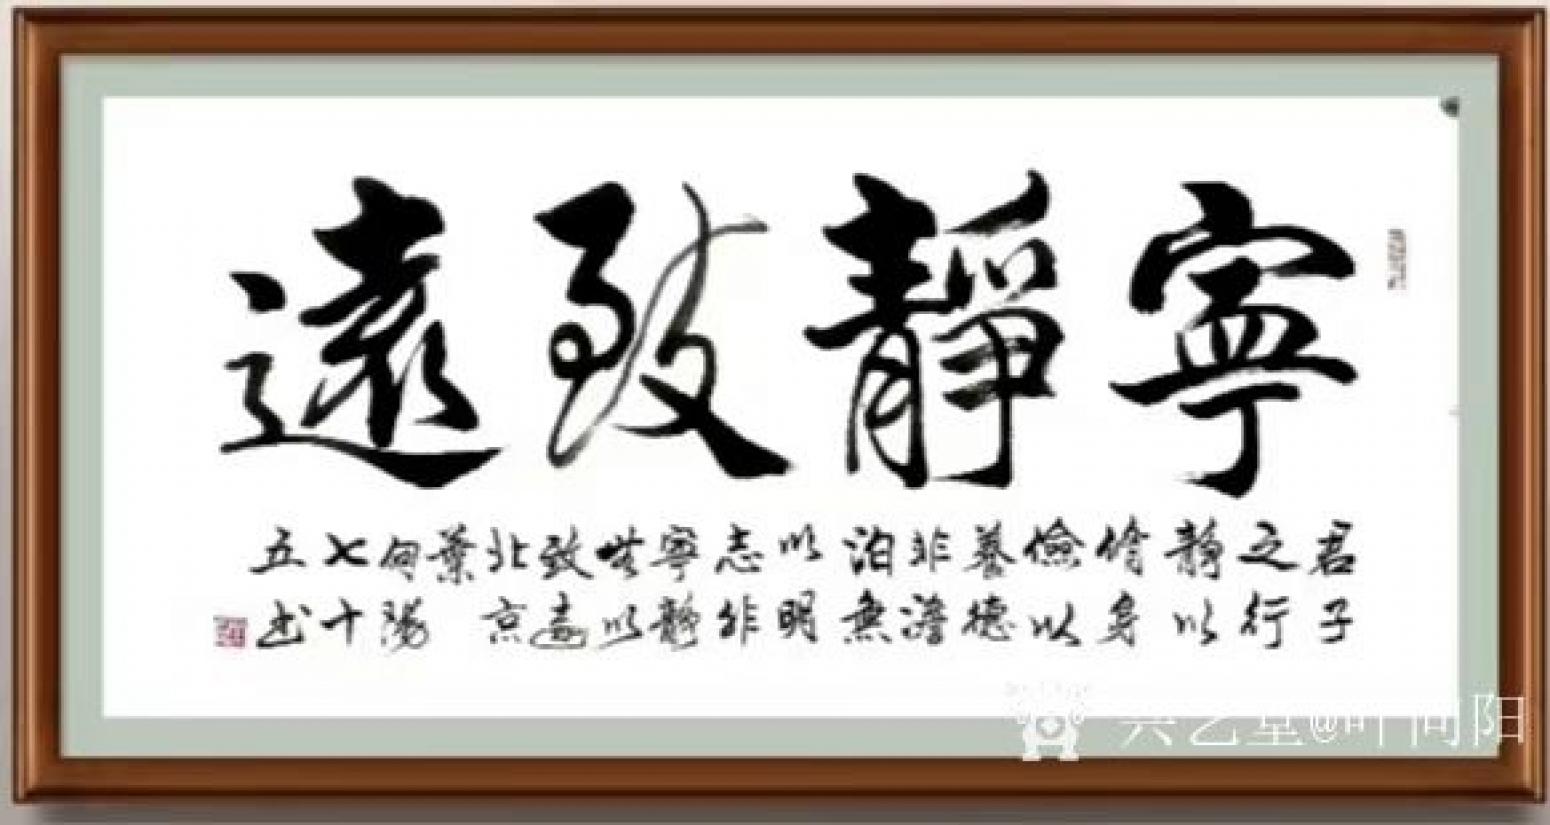 寧靜致遠
君子
之行
靜以
脩身
儉以
養德
非澹
泊無
以明
志非
寧靜
無以
致遠
北京
葉
向陽
七十
五
兴艺堂@叶向阳